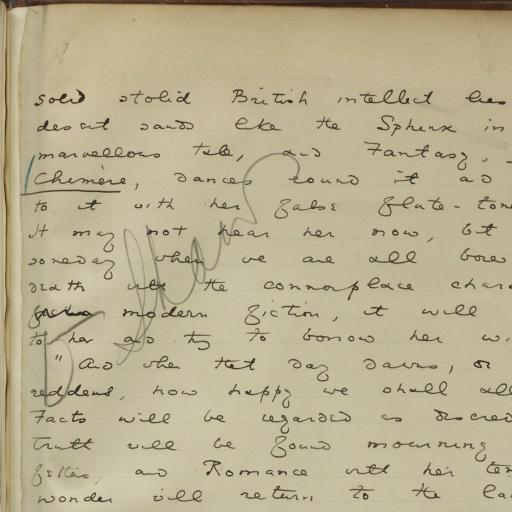 solid stolid British intellect lies
desert sands like the Sphinx in
marvellous tale, and Fantasy,
Chimère, dances round it and
to it with her false flute-ton
It may not hear her now, but
someday when we are all bore
death with the commonplace char
of modern fiction, it will
to her and try to borrow her wi
"And when that day dawns, or
reddens, how happy we shall all
Facts will be regarded as discred
truth will be found mourning
fetters, and Romance with her tem
wonder will return to the lan
Shaw
5